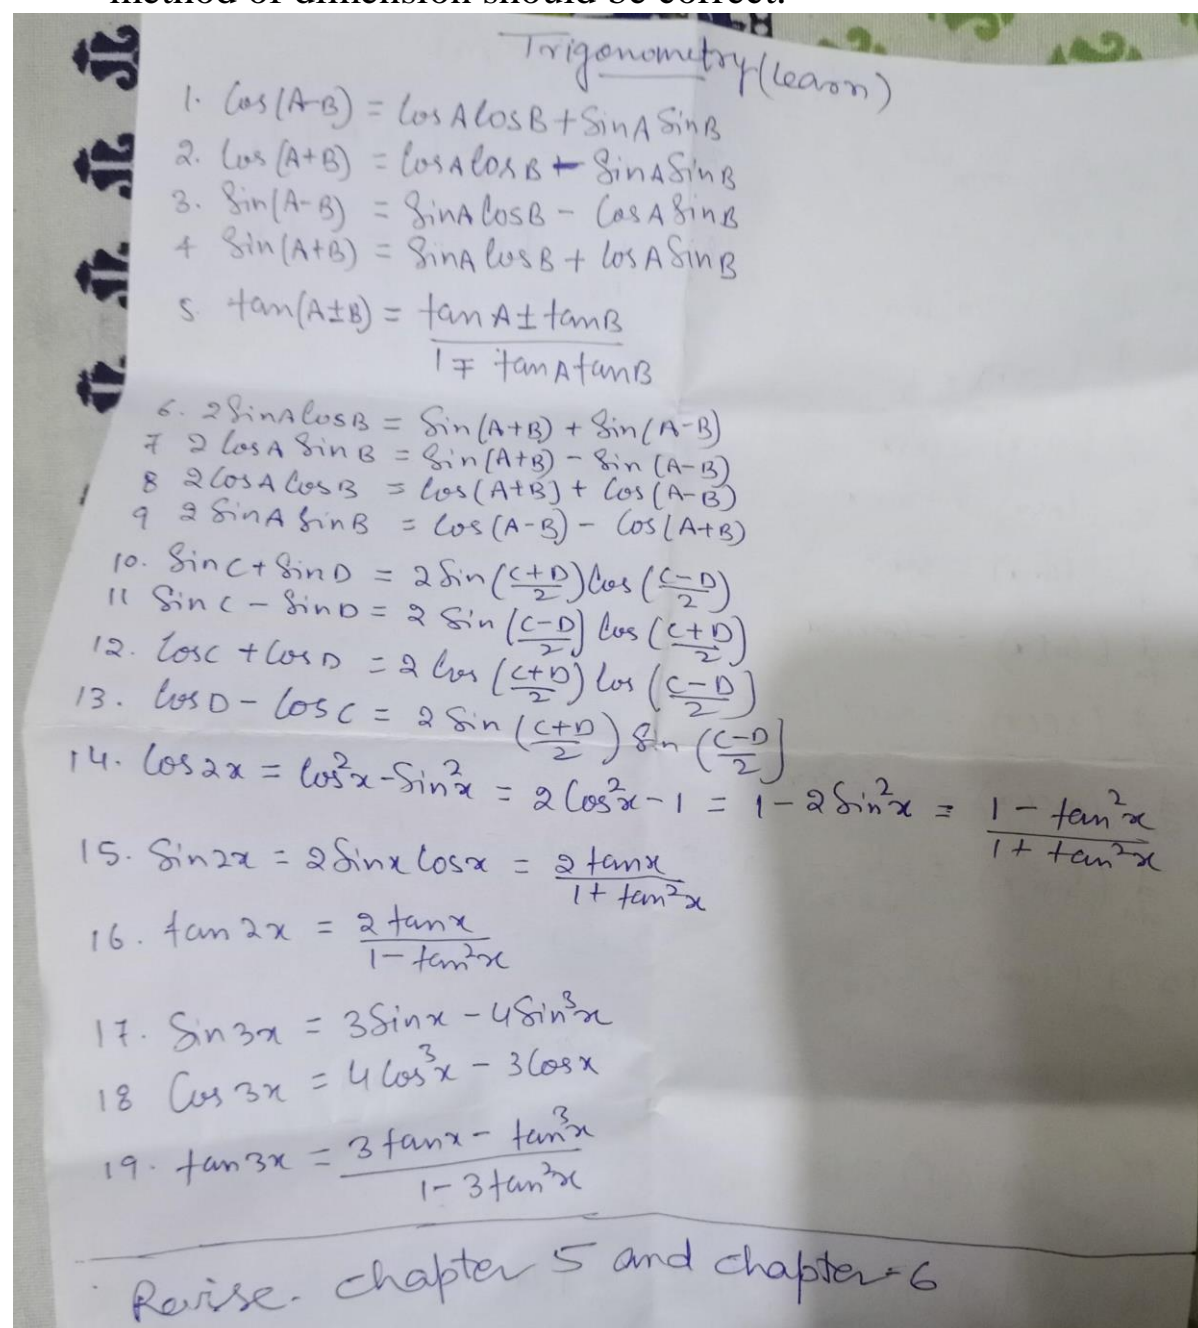 method of dimension should be correct.
Trigonometry (learn)
1. Cos(A-B) = CosACosB + SinA SinB
2. Cos(A+B) = CosACosB - SinASinB
3. Sin(A-B) = SinACosB - CosASinB
4 Sin(A+B) = SinACosB + CosASinB
5. tan(A±B) = tanA ± tanB / 1 ∓ tanAtanB
6. 2SinACosB = Sin(A+B) + Sin(A-B)
7 2CosASinB = Sin(A+B) - Sin(A-B)
8 2CosACosB = Cos(A+B) + Cos(A-B)
9 2SinASinB = Cos(A-B) - Cos(A+B)
10. SinC + SinD = 2Sin((C+D)/2) Cos((C-D)/2)
11 SinC - SinD = 2Sin((C-D)/2) Cos((C+D)/2)
12. CosC + CosD = 2Cos((C+D)/2) Cos((C-D)/2)
13. CosD - CosC = 2Sin((C+D)/2) Sin((C-D)/2)
14. Cos2x = Cos²x - Sin²x = 2Cos²x - 1 = 1 - 2Sin²x = 1 - tan²x / 1 + tan²x
15. Sin2x = 2SinxCosx = 2tanx / 1 + tan²x
16. tan2x = 2tanx / 1 - tan²x
17. Sin3x = 3Sinx - 4Sin³x
18 Cos3x = 4Cos³x - 3Cosx
19. tan3x = 3tanx - tan³x / 1 - 3tan²x
Revise. chapter 5 and chapter-6